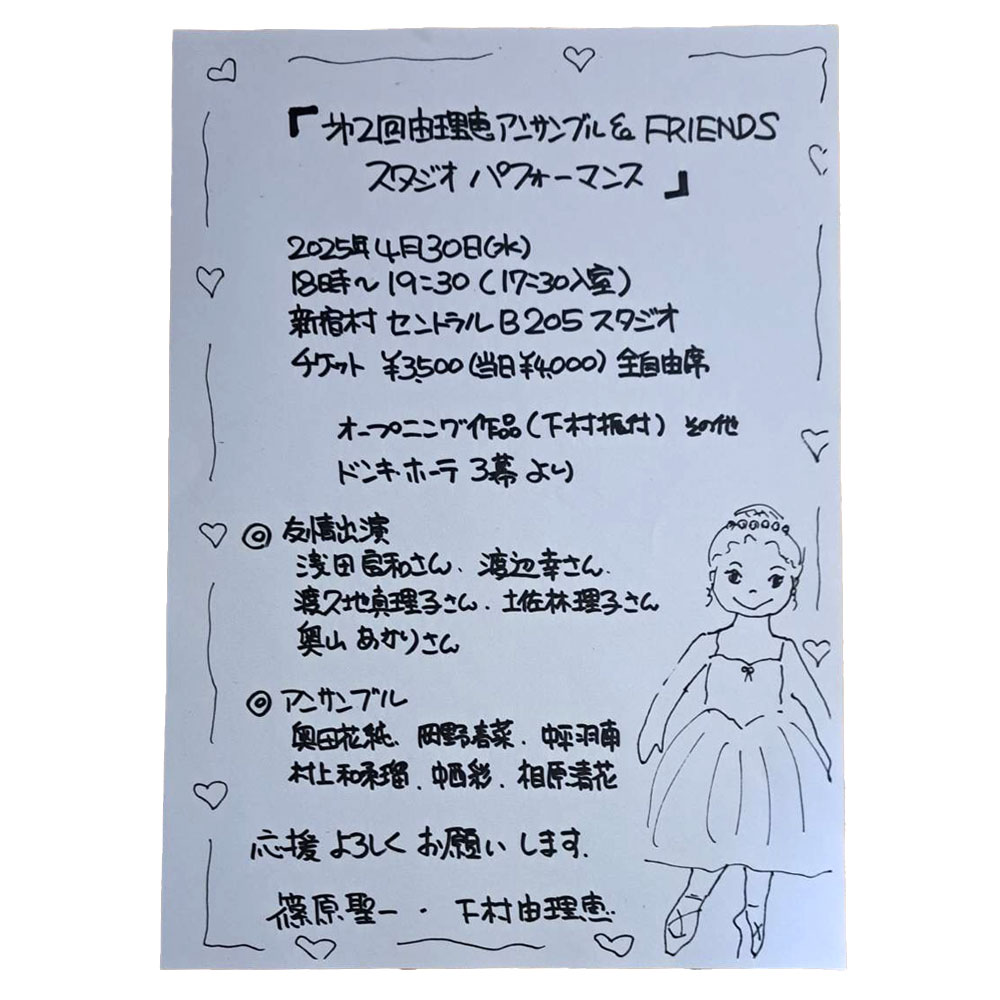 『第2回由理恵アンサンブル& FRIENDS
スタジオ パフォーマンス』
2025年4月30日(水)
18時〜19:30 (17:30入室)
新宿村 セントラル B205 スタジオ
チケット ¥3,500 (当日¥4,000) 全自由席
オープニング作品(下村振付) その他
ドンキホーテ 3幕 より
◎ 友情出演
浅田良和さん、渡辺幸さん、
渡久地真理子さん、土佐林理子さん
奥山 あかりさん
◎ アンサンブル
奥田花純、岡野春菜、中平羽南
村上和承瑠、中西彩、相原清花
応援 よろしく お願いします。
篠原聖一・下村由理恵